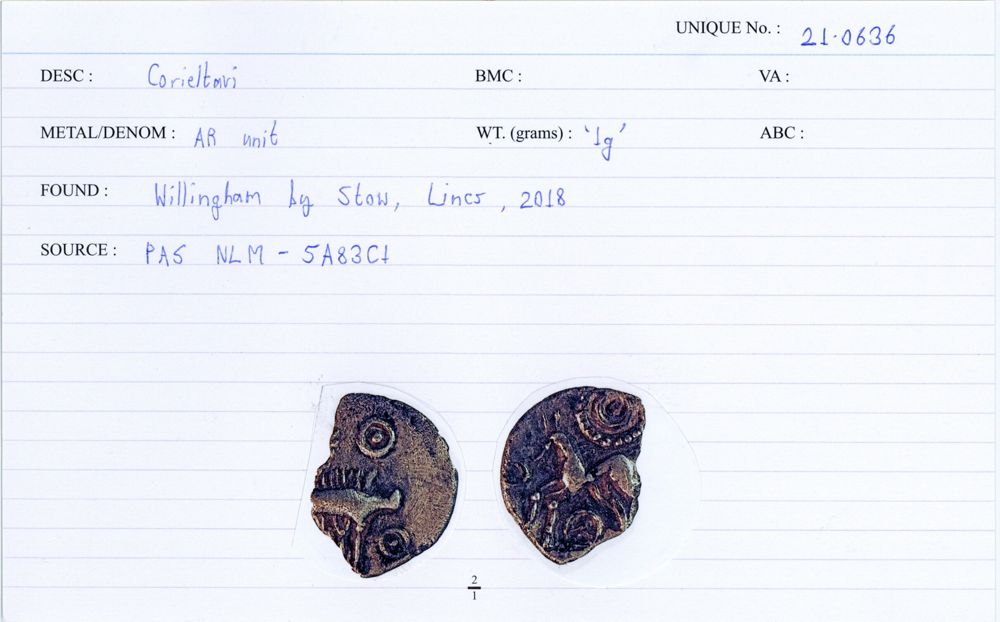 UNIQUE No. : 21·0636
DESC : Corieltavi BMC : VA :
METAL/DENOM : AR unit WT. (grams) : '1g' ABC :
FOUND : Willingham by Stow, Lincs, 2018
SOURCE : PAS NLM - 5A83C1
2
1